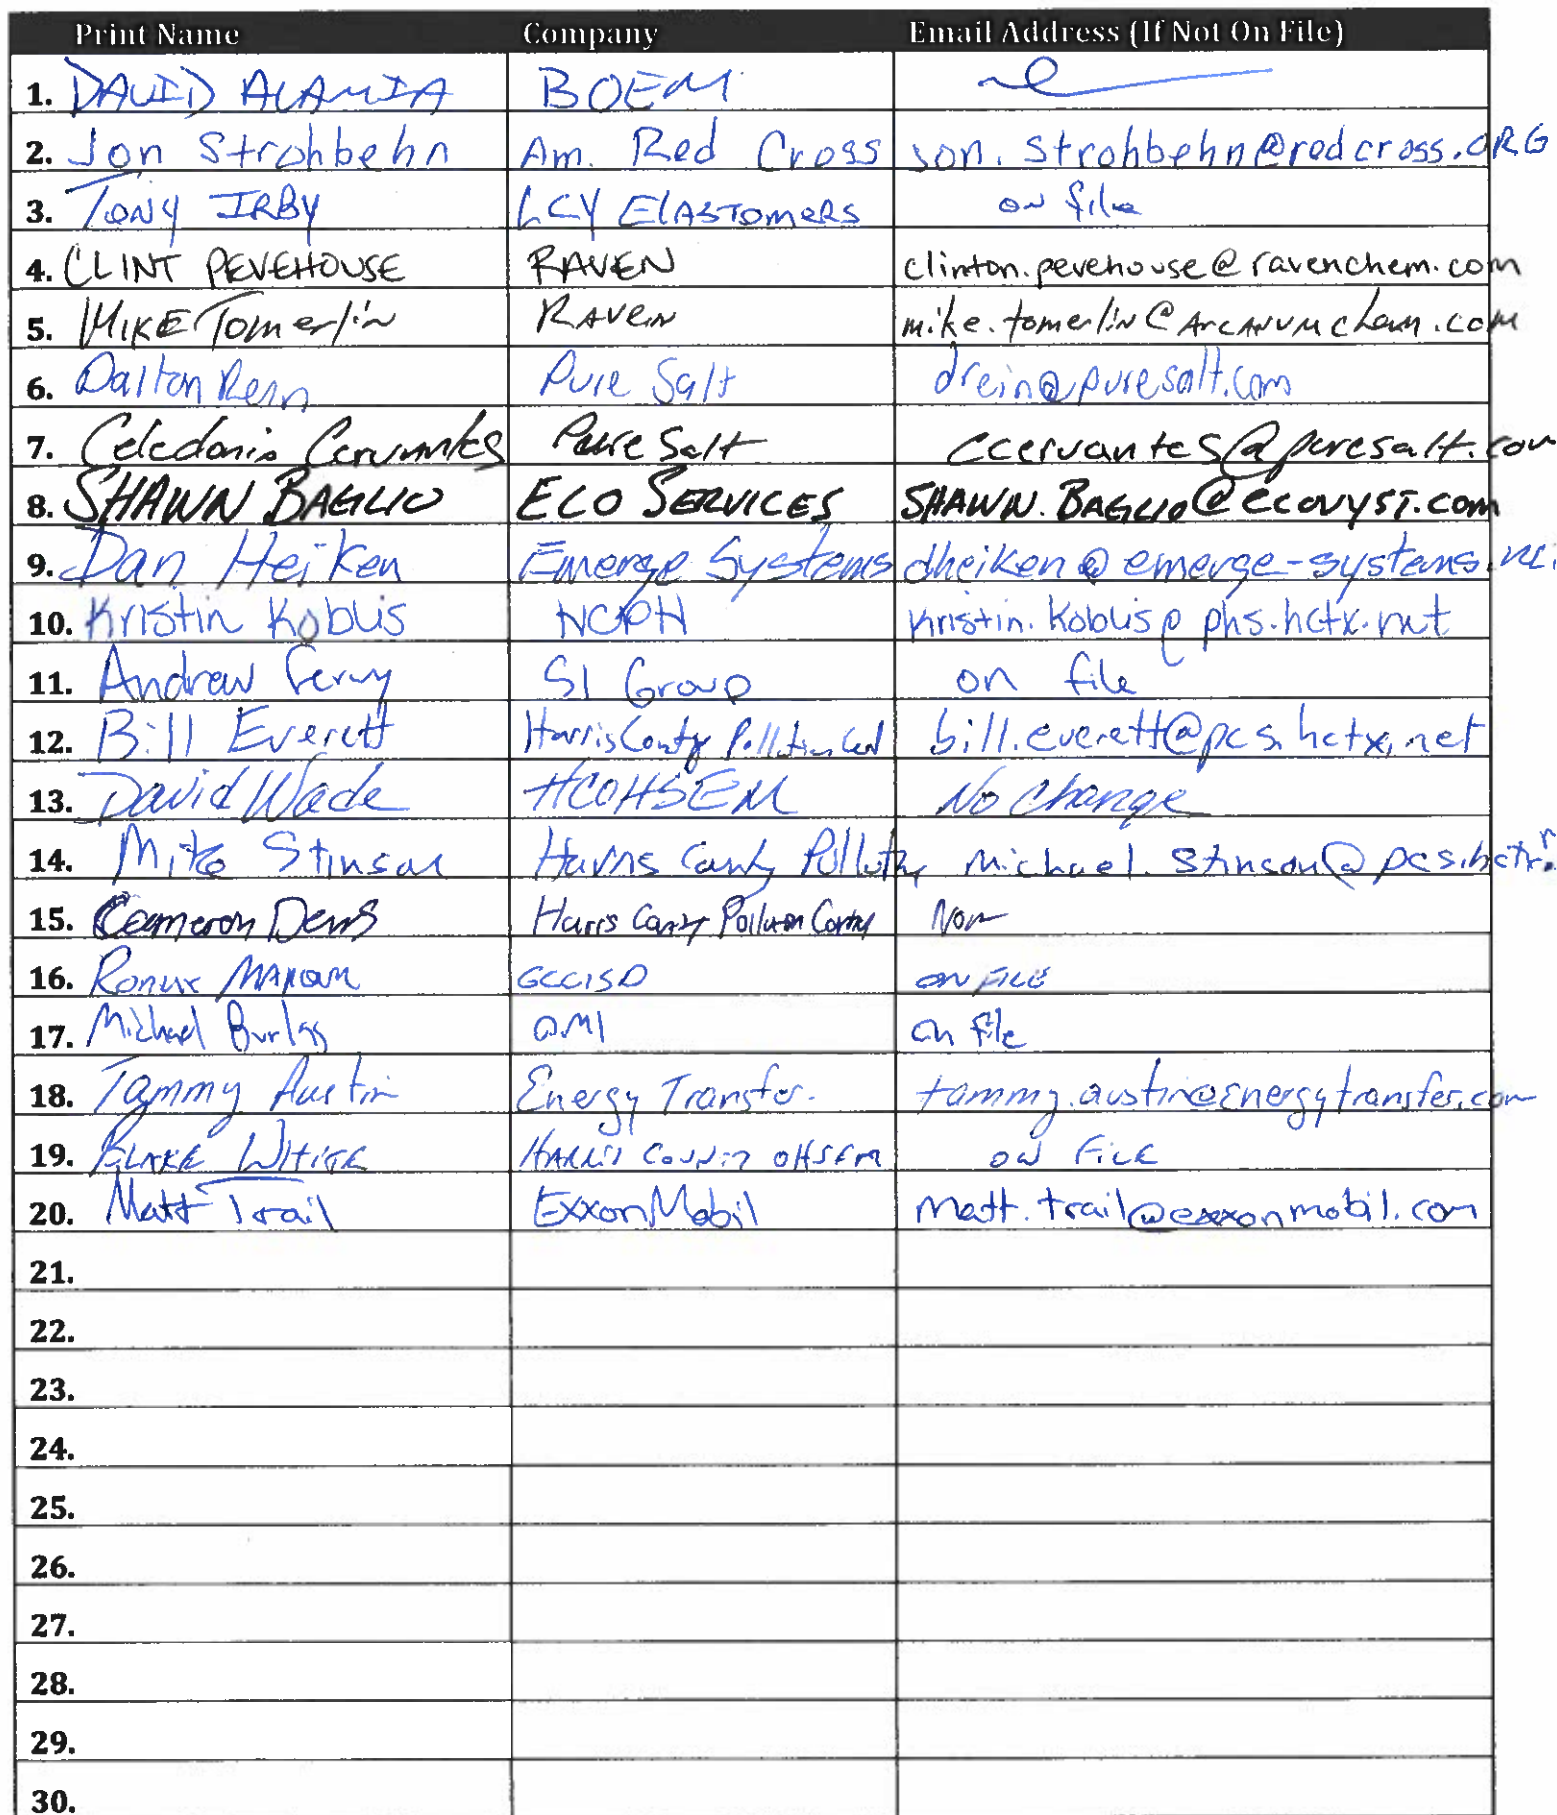 Print Name Company Email Address (If Not On File)
1. DAVID ALAMIA BOEM
2. Jon Strohbehn Am. Red Cross jon.strohbehn@redcross.ORG
3. TONY IRBY LCY ElASTomeRS on file
4. CLINT PEVEHOUSE RAVEN clinton.pevehouse@ravenchem.com
5. MIKE Tomerlin RAVEN mike.tomerlin@Arcanumchem.com
6. Dalton Pure Salt drein@puresalt.com
7. Celedonio Cervantes Pure Salt ccervantes@puresalt.com
8. SHAWN BAGLIO ECO SERVICES SHAWN.BAGLIO@ecovyst.com
9. Dan Heiken Emerge Systems dheiken@emerge-systems.
10. Kristin Kobus kristin.kobus@phs.hctx.net
11. Andrew SI Group on file
12. Bill Everett Harris County Pollution bill.everett@pcs.hctx.net
13. David Wade HCOHSEM No Change
14. Mike Stinson Harris County Michael.Stinson@pcs.hctx.
15. Cameron Harris County Pollution
16. GCCISD ON FILE
17. Michael on file
18. Tammy Austin Energy Transfer. tammy.austin@energytransfer.com
19. BLAKE WHITE HARRIS COUNTY OHSEM ON FILE
20. Matt Trail ExxonMobil matt.trail@exxonmobil.com
21.
22.
23.
24.
25.
26.
27.
28.
29.
30.